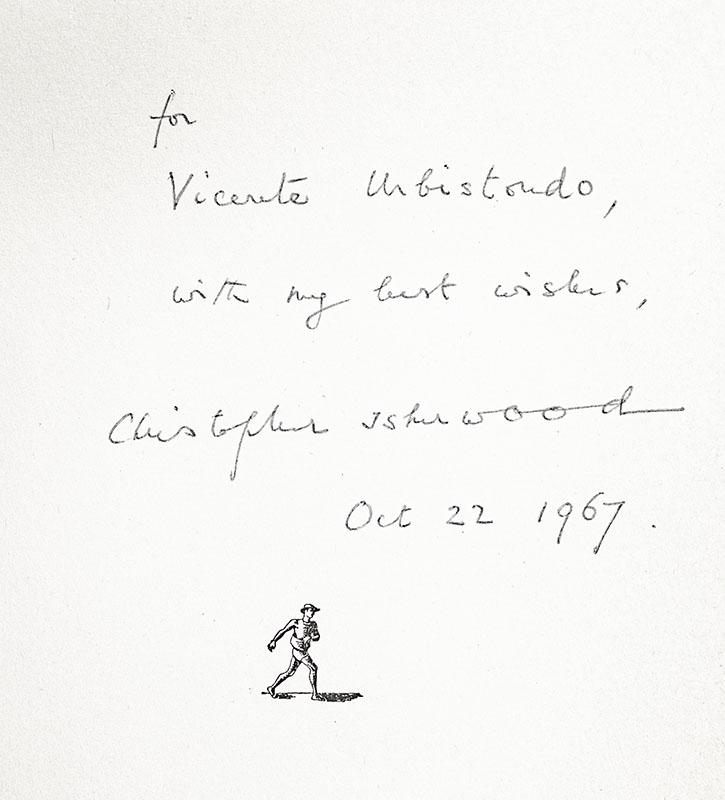 for
Vicente Urbistondo,
with my best wishes,
Christopher Isherwood
Oct 22 1967.